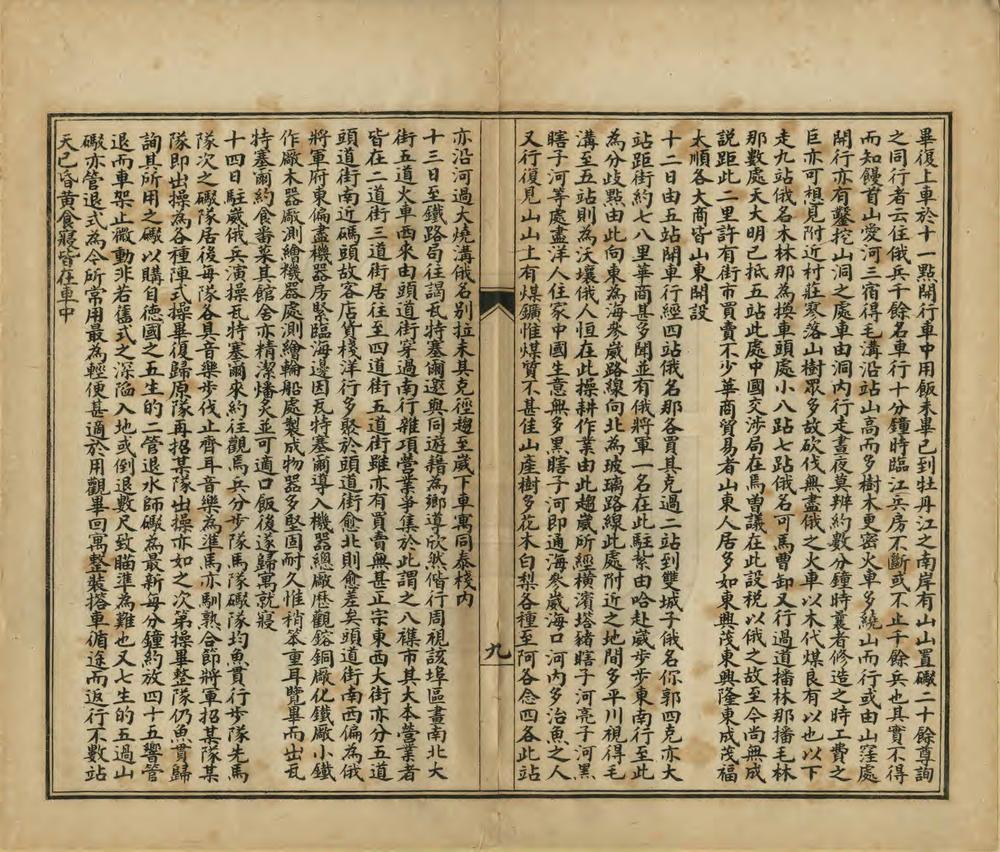 畢復上車於十一點開行車中用飯未畢已到牡丹江之南岸有山山置礮二十餘尊詢
之同行者云住俄兵千餘名車行十分鐘時臨江兵房不斷或不止千餘兵也其實不得
而知饅首山愛河三宿得毛溝沿站山高而多樹木更密火車多繞山而行或由山窪處
開行亦有鑿挖山洞之處車由洞內行走晝夜莫辨約數分鐘時曩者修造之時工費之
巨亦可想見附近村莊寥落山樹眾多故砍伐無盡俄之火車以木代煤良有以也以下
走九站俄名木林那為換車頭處小八站七站俄名可馬曹卸又行過道播林那播毛林
那數處天大明已抵五站此處中國交涉局在焉曾議在此設税以俄之故至今尚無成
說距此二里許有街市買賣不少華商貿易者山東人居多如東興茂東興隆東成茂福
太順各大商皆山東開設
十二日由五站開車行經四站俄名那各買其克過二站到雙城子俄名你郭四克亦大
站距街約七八里華商甚多聞並有俄將軍一名在此駐紮由哈赴崴步步東南行至此
為分歧點由此向東為海參崴路線向北為玻璃路線此處附近之地間多平川視得毛
溝至五站則為沃壤俄人恒在此操耕作業由此趨崴所經橫濱塔豬瞎子河亮子河黑
瞎子河等處盡洋人住家中國生意無多黑瞎子河即通海參崴海口河內多治魚之人
又行復見山山上有煤鑛惟煤質不甚佳山產樹多花木白梨各種至阿各念四各此站
九
亦沿河過大燒溝俄名别拉未其克徑趨至崴下車寓同泰棧內
十三日至鐵路局往謁瓦特塞爾邀與同遊藉為鄉導欣然偕行周視該埠區畫南北大
街五道火車西來由頭道街穿過南行雜項營業爭集於此謂之八襍市其大本營業者
皆在二道街三道街居住至四道街五道街雖亦有買賣無甚正宗東西大街亦分五道
頭道街南近碼頭故客店貨棧洋行多聚於頭道街愈北則愈差矣頭道街南西偏為俄
將軍府東偏盡機器房緊臨海邊因瓦特塞爾導入機器總廠歷觀鎔銅廠化鐵廠小鐵
作廠木器廠測繪機器處測繪輪船處製成物器多堅固耐久惟稍笨重耳覽畢而出瓦
特塞爾約食番菜其館舍亦精潔燔炙並可適口飯後遂歸寓就寢
十四日駐崴俄兵演操瓦特塞爾來約往觀馬兵分步隊馬隊礮隊均魚貫行步隊先馬
隊次之礮隊居後每隊各具音樂步伐止齊耳音樂為準馬亦馴熟合節將軍招某隊某
隊即出操為各種陣式操畢復歸原隊再招某隊出操亦如之次第操畢整隊仍魚貫歸
詢其所用之礮以購自德國之五生的二管退水師礮為最新每分鐘約放四十五響管
退而車架止微動非若舊式之深陷入地或倒退數尺致瞄準為難也又七生的五過山
礮亦管退式為今所常用最為輕便甚適於用觀畢回寓整裝搭車循途而返行不數站
天已昏黄食寢皆在車中